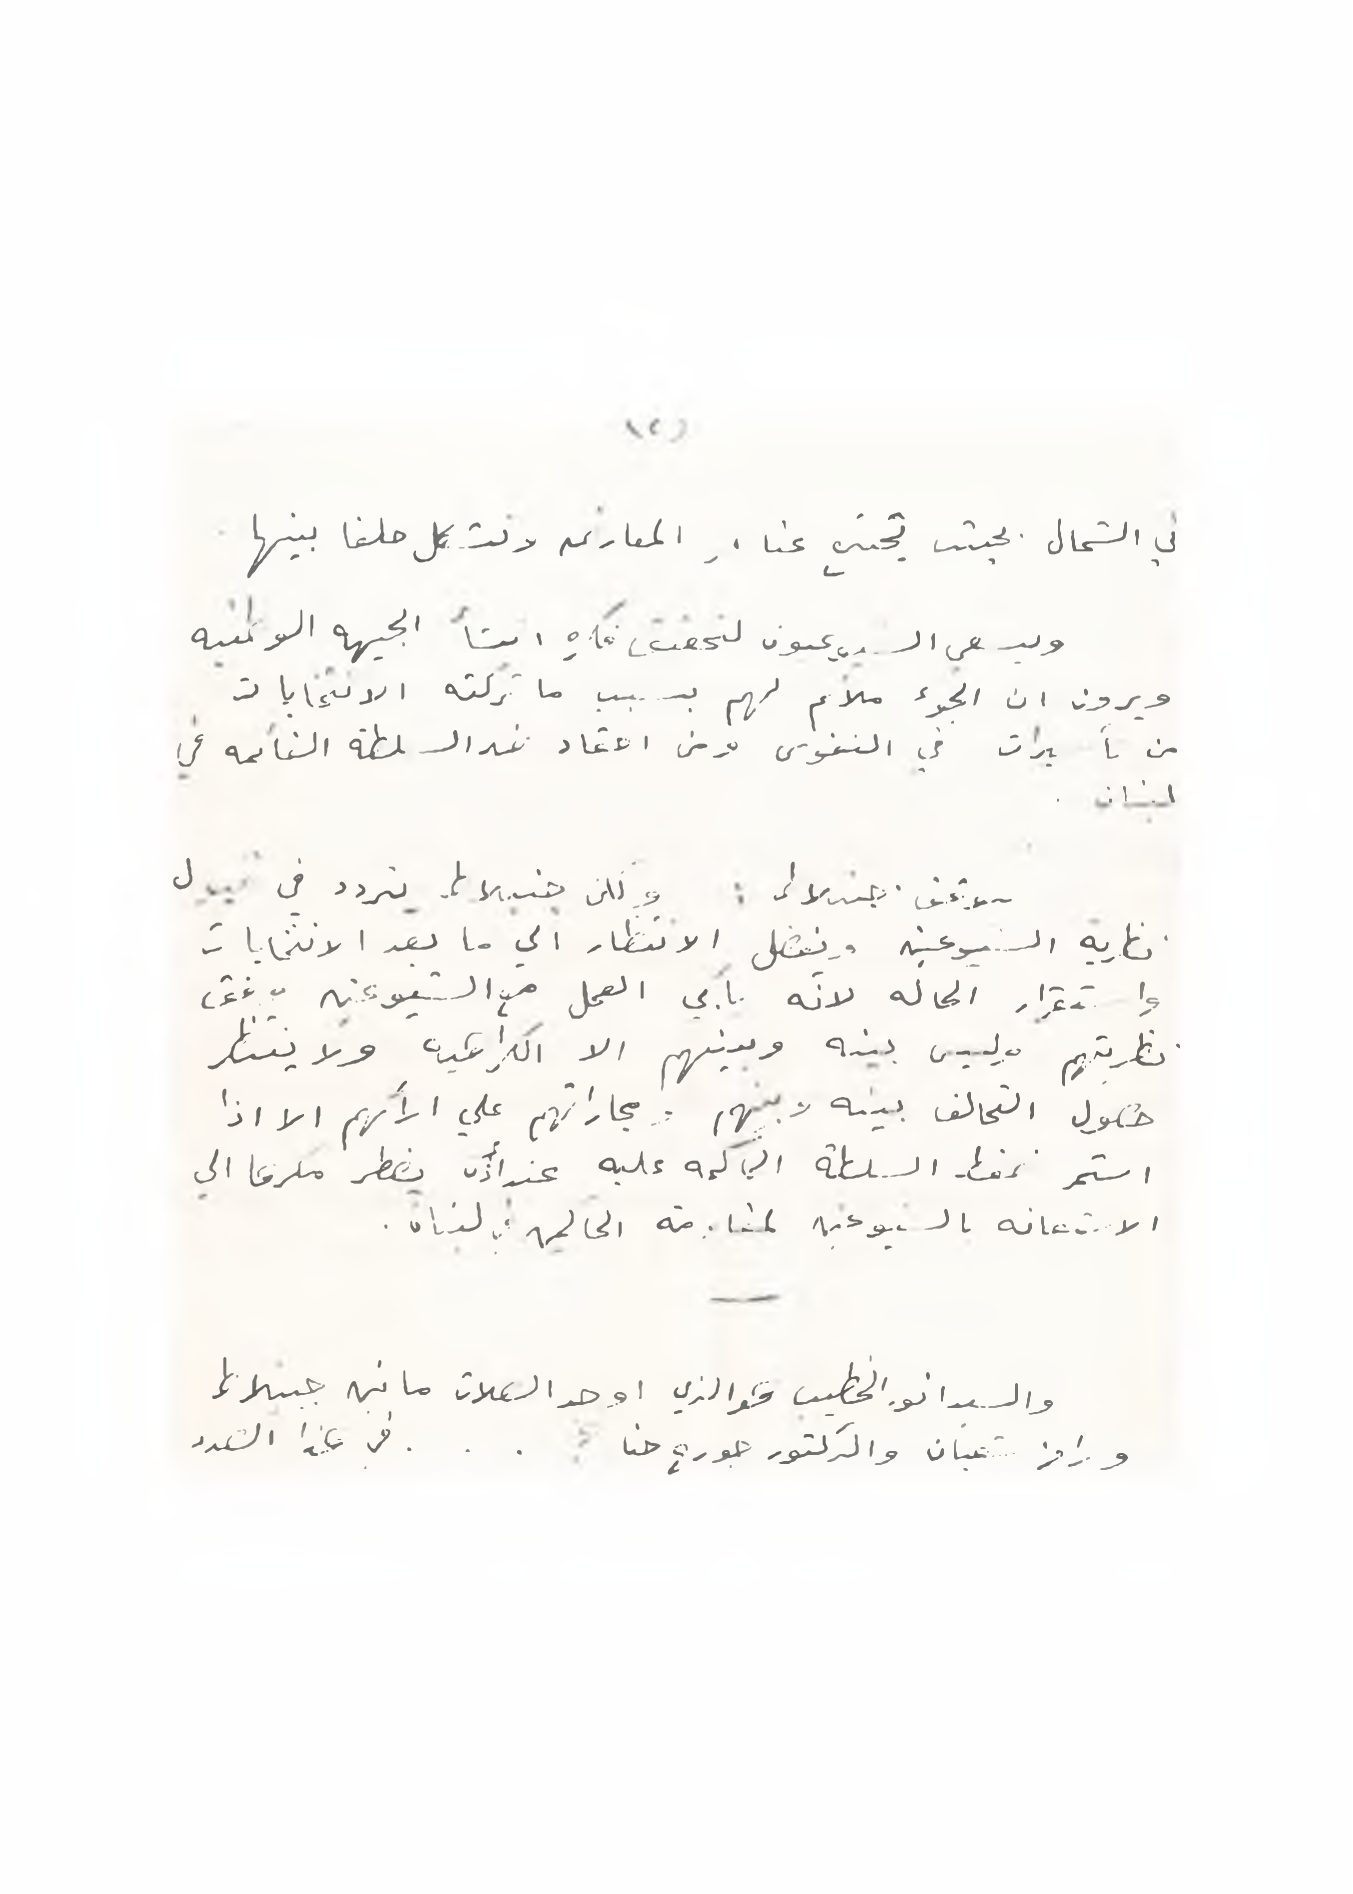 (١٢)
في الشمال بحيث تجتمع عناصر المعارضه وتتشكل حلفا بينها
ويسعى الشيوعيون لتحقيق فكرة انشأ الجبهه الوطنيه
ويرون ان الجوء ملائم لهم بسبب ما تركته الانتخابات
من تأثيرات في النفوس ومن احقاد ضد السلطة القائمه في
لبنان .
موقف جنبلاط : ولكن جنبلاط يتردد في قبول
نظرية الشيوعين ويفضل الانتظار الي ما بعد الانتخابات
واستقرار الحاله لانه يأبي العمل مع الشيوعين وفق
نظريتهم وليس بينه وبينهم الا الكراهية ولا ينتظر
حصول التحالف بينه وبينهم ومجاراتهم علي ارائهم الا اذا
استمر ضغط السلطة الحاكمه عليه عندئذ يضطر مكرها الي
الاستعانه بالشيوعين لمقاومة الحاكمين في لبنان .
والسيد انور الخطيب هو الذي اوجد الصلات ما بين جنبلاط
ورامز شعبان والدكتور جورج حنا . . . في هذا الصدد